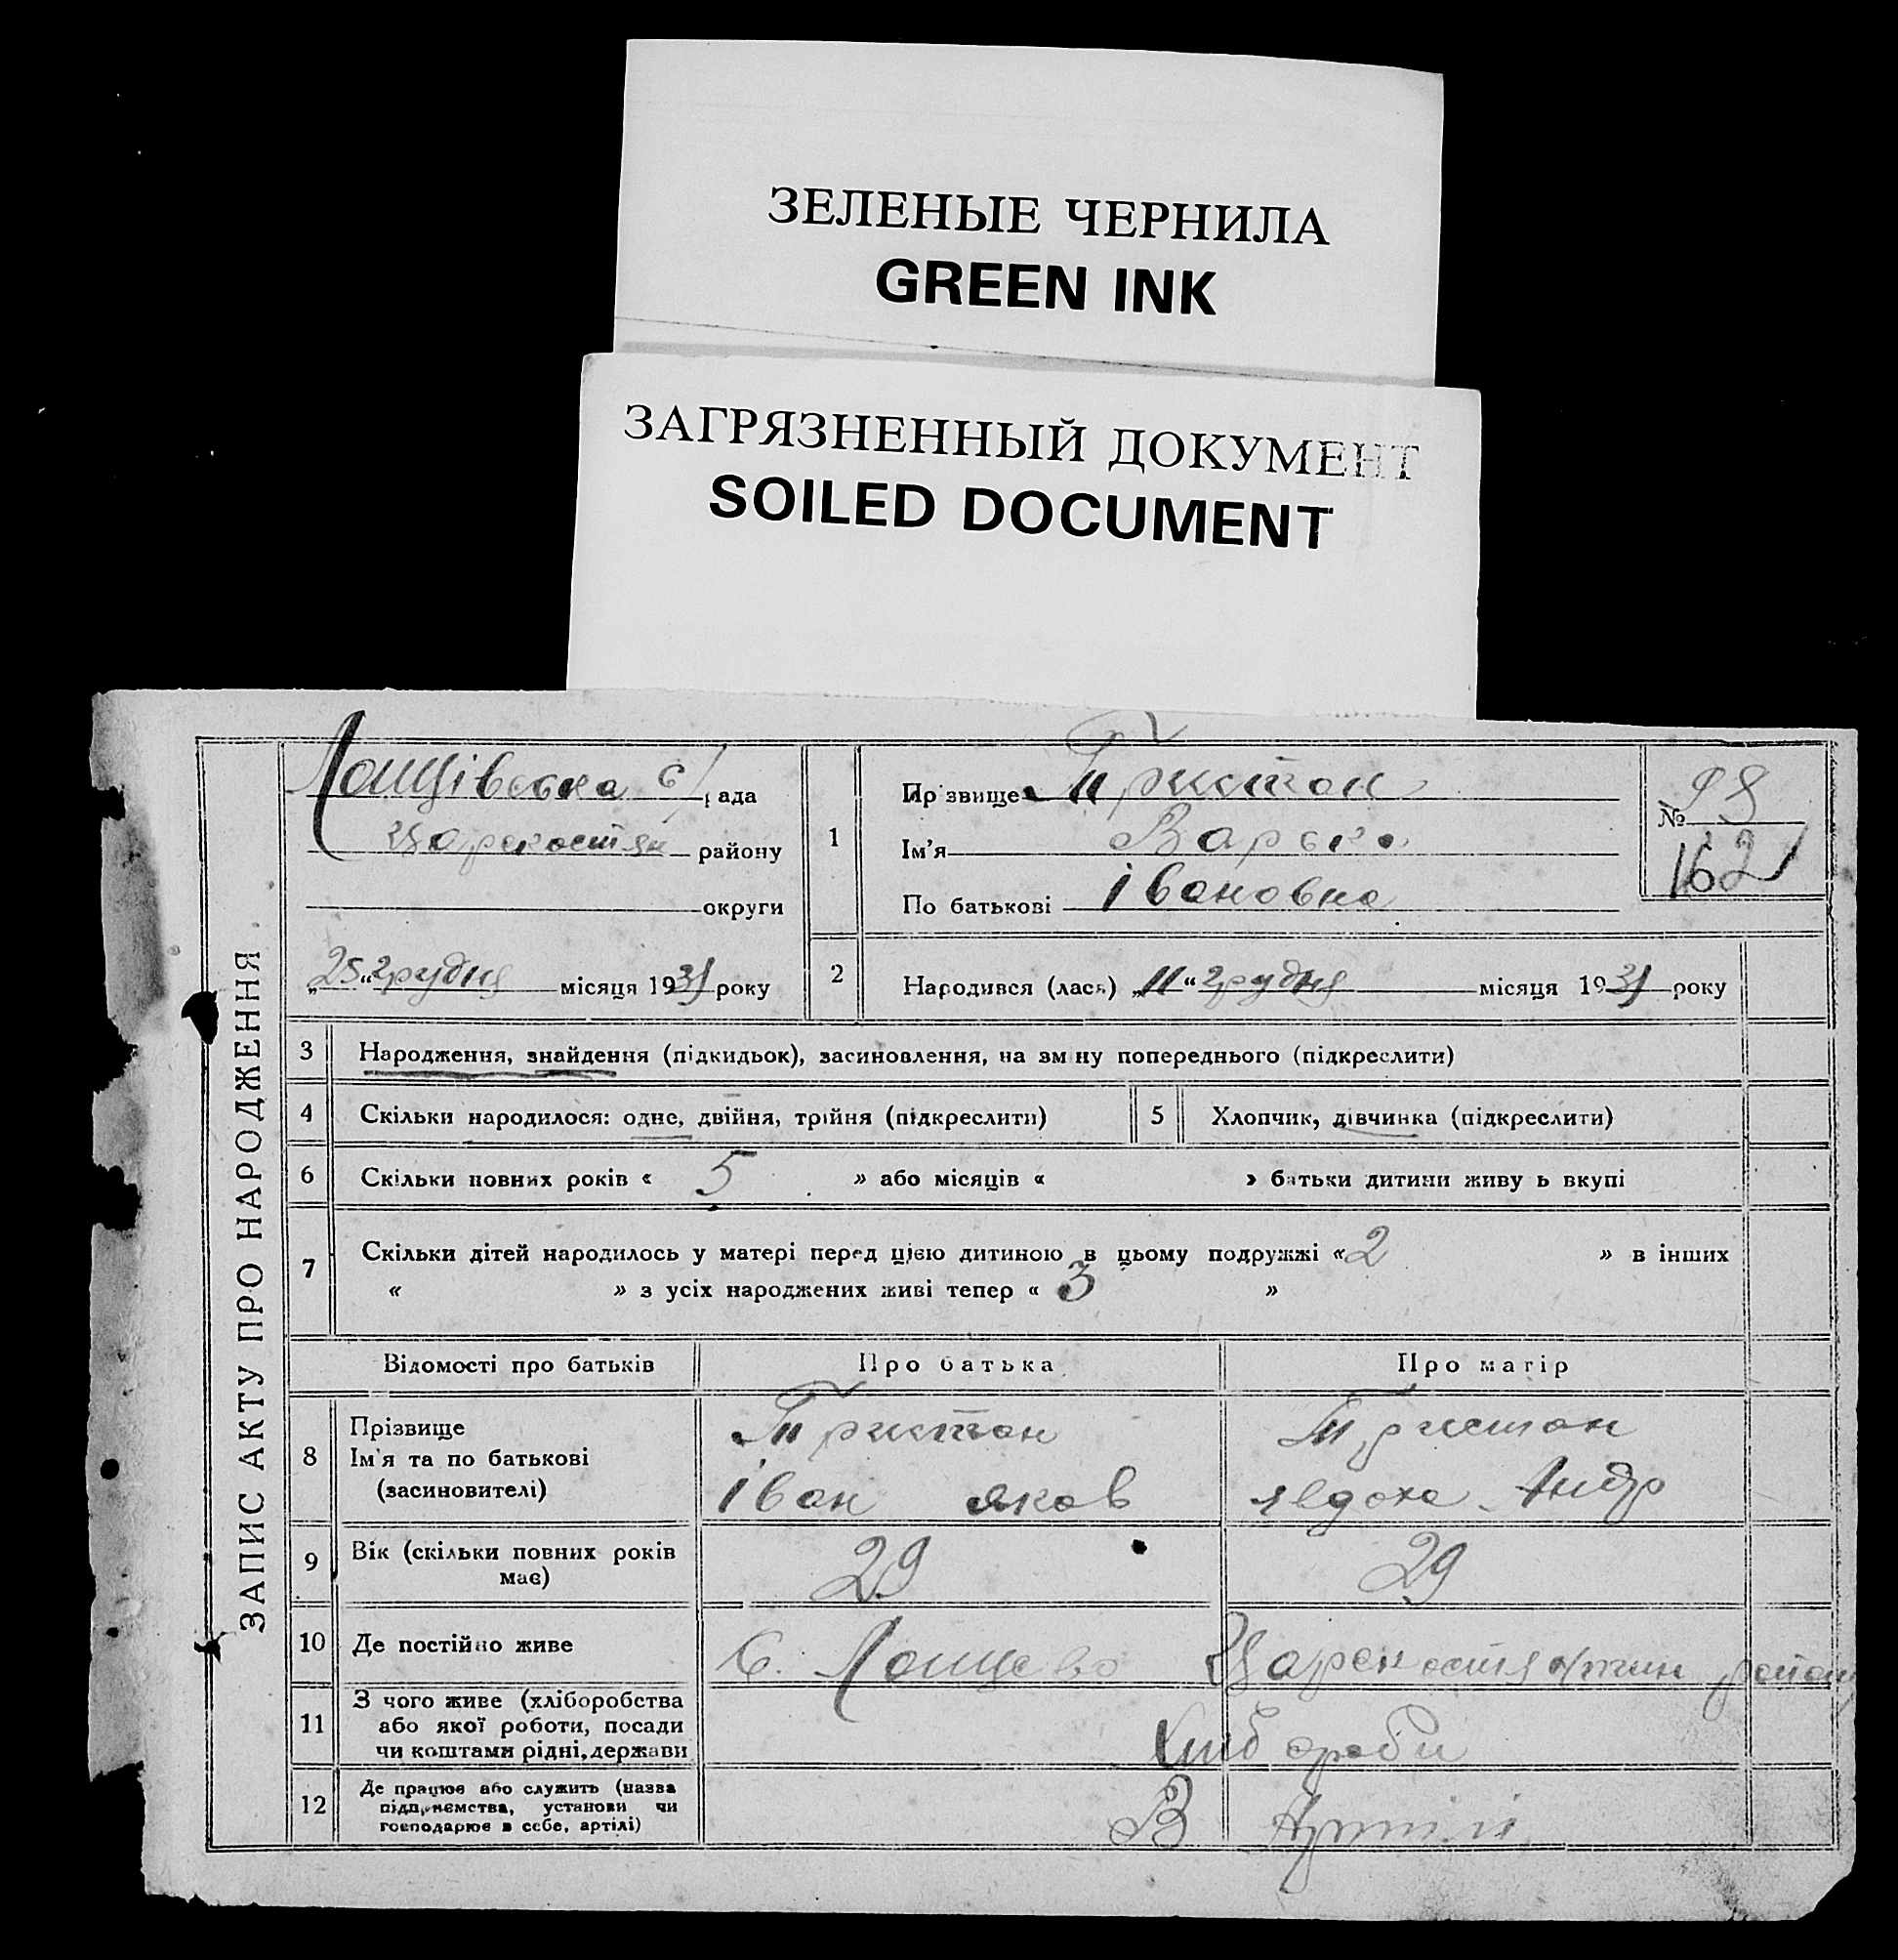 ЗЕЛЕНЫЕ ЧЕРНИЛА
GREEN INK
ЗАГРЯЗНЕННЫЙ ДОКУМЕНТ
SOILED DOCUMENT
ЗАПИС АКТУ ПРО НАРОДЖЕННЯ
Лощівська с/рада
району
округи
„25“ грудня місяця 1931 року
1
Прізвище Тристан
Ім'я
По батькові івановна
№ 98
162
2 Народився (лась) „11“ грудня місяця 1931 року
3 Народження, знайдення (підкидьок), засиновлення, на зміну попереднього (підкреслити)
4 Скільки народилося: одне, двійня, трійня (підкреслити)
5 Хлопчик, дівчинка (підкреслити)
6 Скільки повних років « 5 » або місяців « » батьки дитини живу ь вкупі
7 Скільки дітей народилось у матері перед цією дитиною в цьому подружжі « 2 » в інших
« » з усіх народжених живі тепер « 3 »
Відомості про батьків Про батька Про матір
8
Прізвище Тристан Тристан
Ім'я та по батькові
(засиновителі) іван яков явдоха Андр
9 Вік (скільки повних років 29 29
має)
10 Де постійно живе С. Лощево
11
З чого живе (хліборобства
або якої роботи, посади
чи коштами рідні, держави
Хлібороби
12
Де працює або служить (назва
підприємства, установи чи
господарює в себе, артілі)
В Артілі